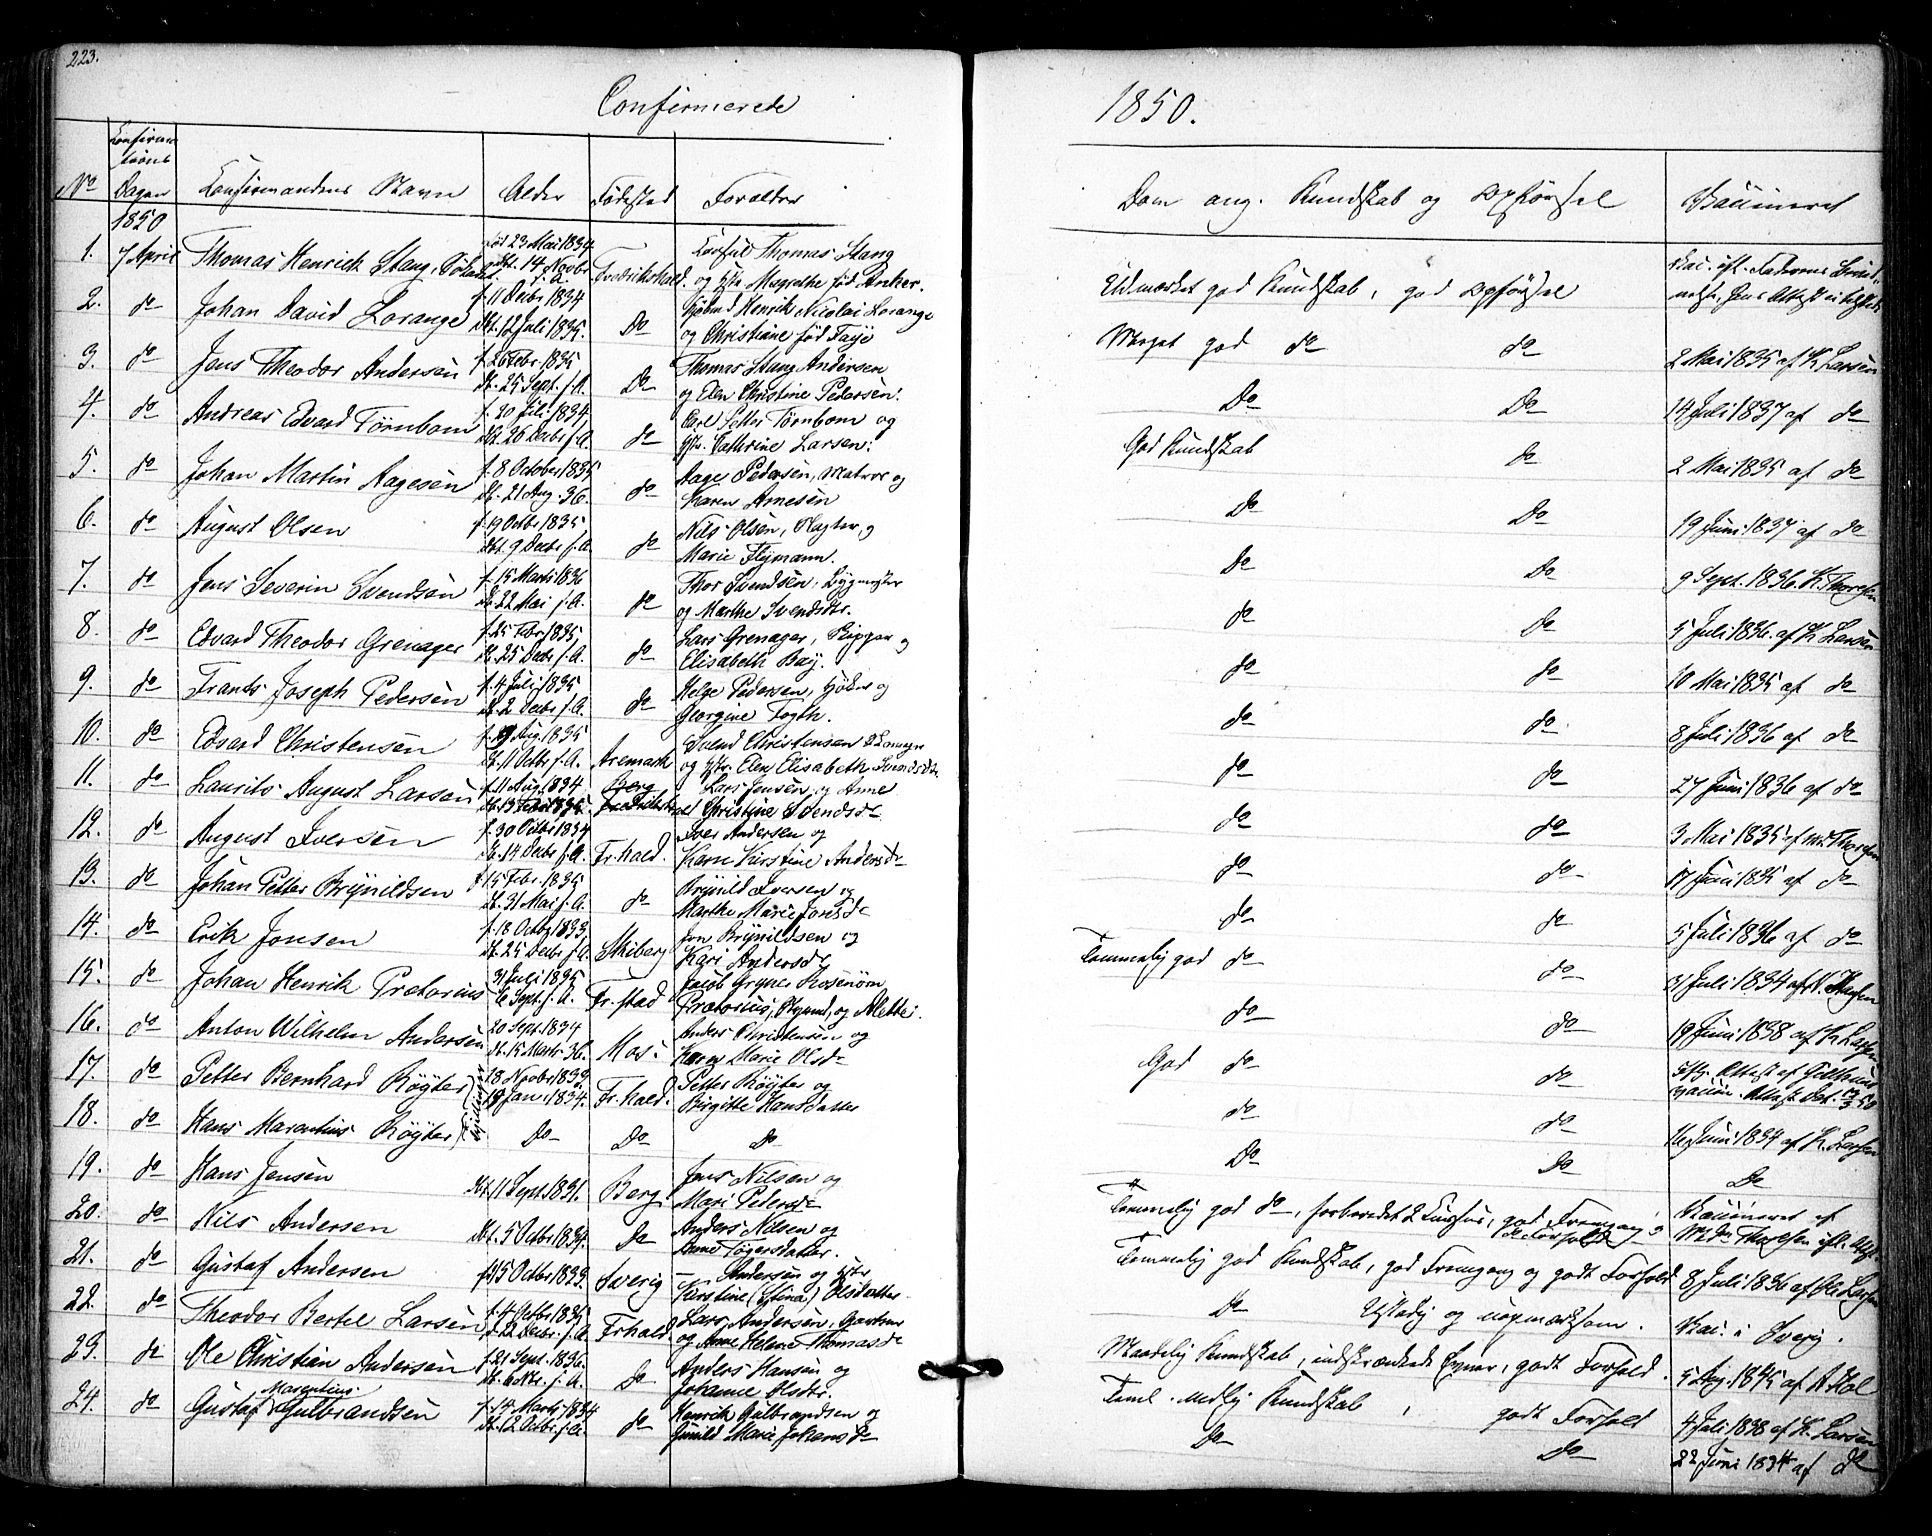 223.
Confirmerede
1850.
No
Confirma-
tions
Dagen
Confirmandens Navn
Alder
Födested
Forældre
Dom ang. Kundskab og Opförsel
Vaccineret
1850
1. 7 April Thomas Henrick Stang, föt 23 Mai 1834 dbt. 14 Novbr f. A. Fredrikshald. Thomas Stang
og Magrethe föd Anker.
Udmærket god Kundskab, god Opförsel
2. do Johan David Lorange f. 11 Decbr 1834 dbt. 12 Juli 1835. Do Henrik Nicolai Lorange
og Christiane föd Faye
Meget god do do 2 Mai 1835 af K Larsen
3. do Jens Theodor Andersen f. 26 Febr. 1835 dt. 25 Sept. f. A. Do Thomas Stang Andersen
og Elen Christine Pedersen.
Do Do 14 Juli 1837 af do
4. do Andreas Edvard Törnbom f. 20 Juli 1834, dbt. 26 Decbr f. A. do Carl Petter Törnbom og
Cathrine Larsen.
God Kundskab do 2 Mai 1835 af do
5. do Johan Martin Aagesen f. 8 October 1835 dt. 21 Aug. 36. do Aage Pedersen, Matros og
Karen Arnesen
Do Do 19 Juni 1837 af do
6. do August Olsen f. 19 Octbr 1835, dbt. 9 Decbr f. A. do Nils Olsen, og
Marie Flymann.
Do Do 9 Sept. 1836. K. Thoresen
7. do Jens Severin Svendsen f. 15 Marts 1836 dt. 22 Mai f. A. do Thor Svendsen,
og Marthe Svendsdtr.
do Do 5 Juli 1836. af K Larsen
8. do Edvard Theodor Grenager f. 25 Febr. 1835, dt. 25 Decbr f. A. do Lars Grenager, og
Elisabeth Bay.
do do 10 Mai 1835 af do
9. do Frants Joseph Pedersen f. 4 Juli 1835 dt. 2 Decbr f. A. do Helge Pedersen, og
Georgine Fogth.
do do 8 Juli 1836 af do
10. do Edvard Christensen f. 19 Aug. 1835 dt. 11 Octbr f. A. Aremark Svend Christensen
og Elen Elisabeth
do do 27 Juni 1836 af do
11. do Laurits August Larsen f. 11 Aug. 1834 dt. 13 Febr. 1835. Berg Lars Jensen og Anne
Christine Svendsd
do do 3 Mai 1835 af Thoresen
12. do August Iversen f. 30 Octbr 1834 dt. 14 Decbr f. A. Fr.hald. Iver Andersen og
Karn Kirstine Andersd
do do 17 Juni 1835 af do
13. do Johan Petter Brynildsen f. 15 Febr. 1835 dt. 31 Mai f. A. do Brynild Iversen og
Marthe Marie Jonsd
do do 5 Juli 1836 af do
14. do Erik Jonsen f. 18 Octbr 1833, dt. 25 Decbr f. A. Skiberg Jon Brynildsen og
Kari Andersd
Temmelig god do do Juli 1834 af
15. do Johan Henrik Prætorius 31 Juli 1835 6 Sept. f. A. Fr.stad Jacob Grgner Rosenörn
Prætorius, og Alette.
do do 19 Juni 1838 af K Larsen
16. do Anton Wilhelm Andersen 20 Sept. 1834 dt. 15 Marts 36. Mos. Anders Christensen og
Karen Marie Olsd
God do do
17. do Petter Bernhard Röyter 28 Novbr 1833 19 Jan. 1834. Fr.hald. Petter Röyter og
Birgitte Hansdatter
do do 16 Juni 1834 af K. Larsen
18. do Hans Marentius Röyter Do Do Do
Do Do Do
19. do Hans Jensen dbt. 11 Sept. 1831. Berg Jens Nilsen og
Mari Pedersd
Temmelig god do, forberedet 2 god Fremgang Vaccineret af
Thoresen
20. do Nils Andersen dbt. 5 Octbr 1834. Do Anders Nilsen og
Anne Tögersdatter.
Temmelig god Kundskab, god Fremgang og godt Forhold 8 Juli 1836 af Ole Larsen
21. do Gustaf Andersen f. 15 Octbr 1833. Sverig — Andersen og
Kirstine (Stina) Olsdatter
Do Ustadig og uopmærksom. Vac. i Sverig.
22. do Theodor Bertel Larsen f. 4 Octbr 1835 22 Decbr f. A Fr.hald Lars Andersen,
og Anne Helene Thomasd
Maadelig Kundskab, indskrænkede Evner, godt Forhold. 5 Aug. 1845 af
23. do Ole Christian Andersen f. 21 Sept. 1836. dt. 6 f. A. Do Anders Hansen og
Johanne Olsdtr.
Teml. Kundskab, godt Forhold 4 Juli 1838 af K. Larsen
24. do Gustaf Marentius Gulbrandsen f. 14 Marts 1834 dt. 12 Octbr. f. A. do Henrik Gulbrandsen og
Gunild Marie Johansd
Do Do 22 Juni 1834 af do